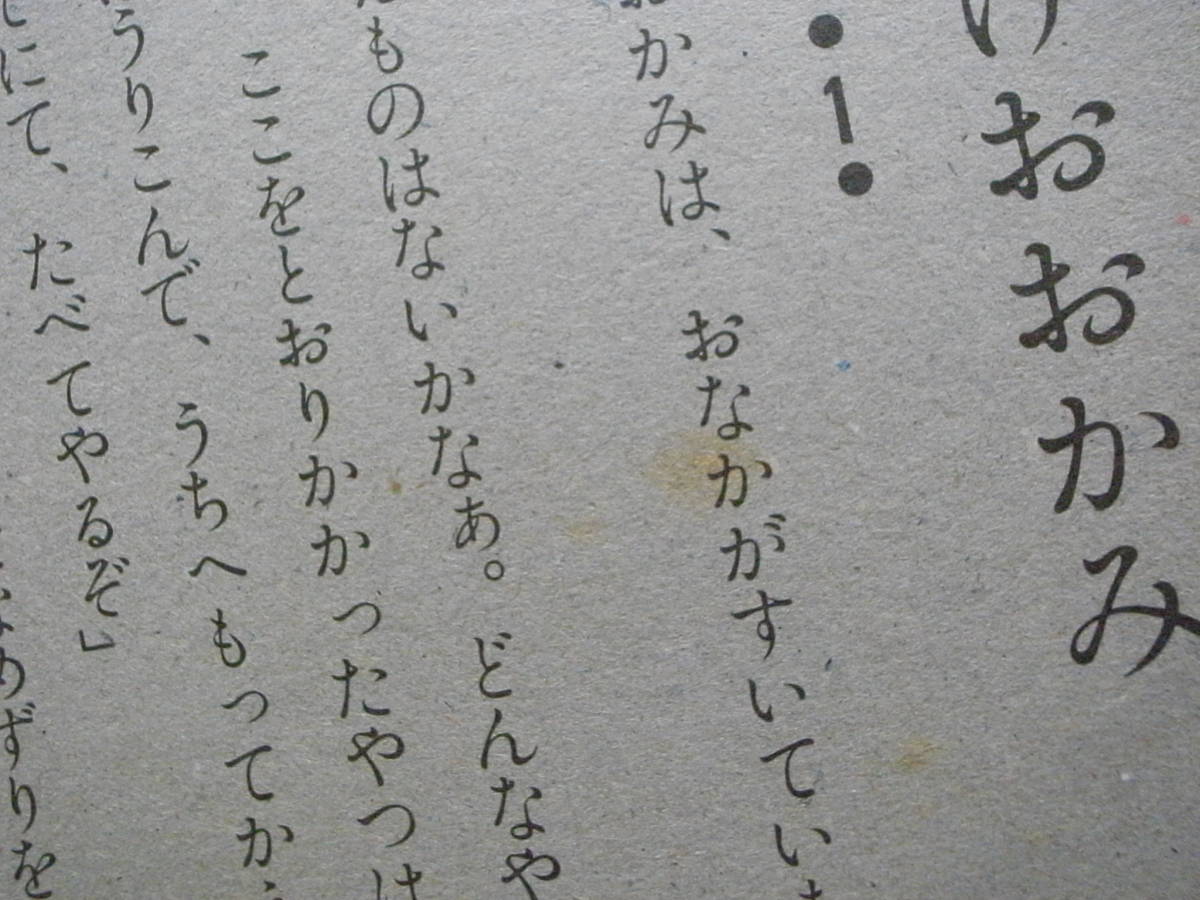 けおおかみ
・1・
おかみは、おなかがすいてい
ものはないかなあ。どんなや
ここをとおりかかったやつは
うりこんで、うちへもってか
にて、たべてやるぞ」
なめずりを